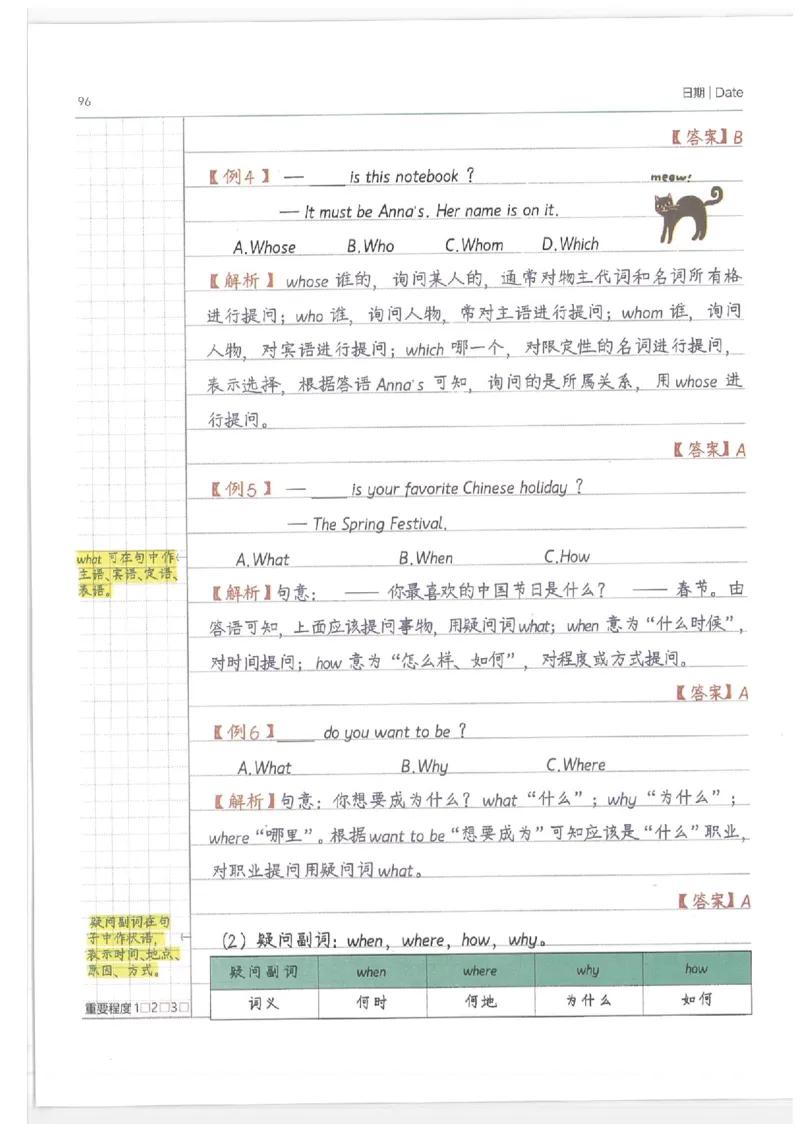 96
日期 | Date
【答案】B
【例4】 — ____ is this notebook ?
— It must be Anna's. Her name is on it.
meow!
A.Whose B.Who C.Whom D.Which
【解析】 whose 谁的, 询问某人的, 通常对物主代词和名词所有格
进行提问; who 谁, 询问人物, 常对主语进行提问; whom 谁, 询问
人物, 对宾语进行提问; which 哪一个, 对限定性的名词进行提问,
表示选择, 根据答语 Anna's 可知, 询问的是所属关系, 用 whose 进
行提问。
【答案】A
【例5】 — ____ is your favorite Chinese holiday ?
— The Spring Festival.
A.What B.When C.How
what 可在句中作
主语、宾语、定语、
表语。
【解析】句意: —— 你最喜欢的中国节日是什么? —— 春节。由
答语可知, 上面应该提问事物, 用疑问词what; when 意为“什么时候”,
对时间提问; how 意为“怎么样、如何”, 对程度或方式提问。
【答案】A
【例6】____ do you want to be ?
A.What B.Why C.Where
【解析】句意: 你想要成为什么? what “什么”; why “为什么”;
where “哪里”。根据want to be “想要成为”可知应该是“什么”职业,
对职业提问用疑问词what。
【答案】A
疑问副词在句
子中作状语,
表示时间、地点、
原因、方式。
(2) 疑问副词: when, where, how, why。
疑问副词 when where why how
词义 何时 何地 为什么 如何
重要程度 1□2□3□